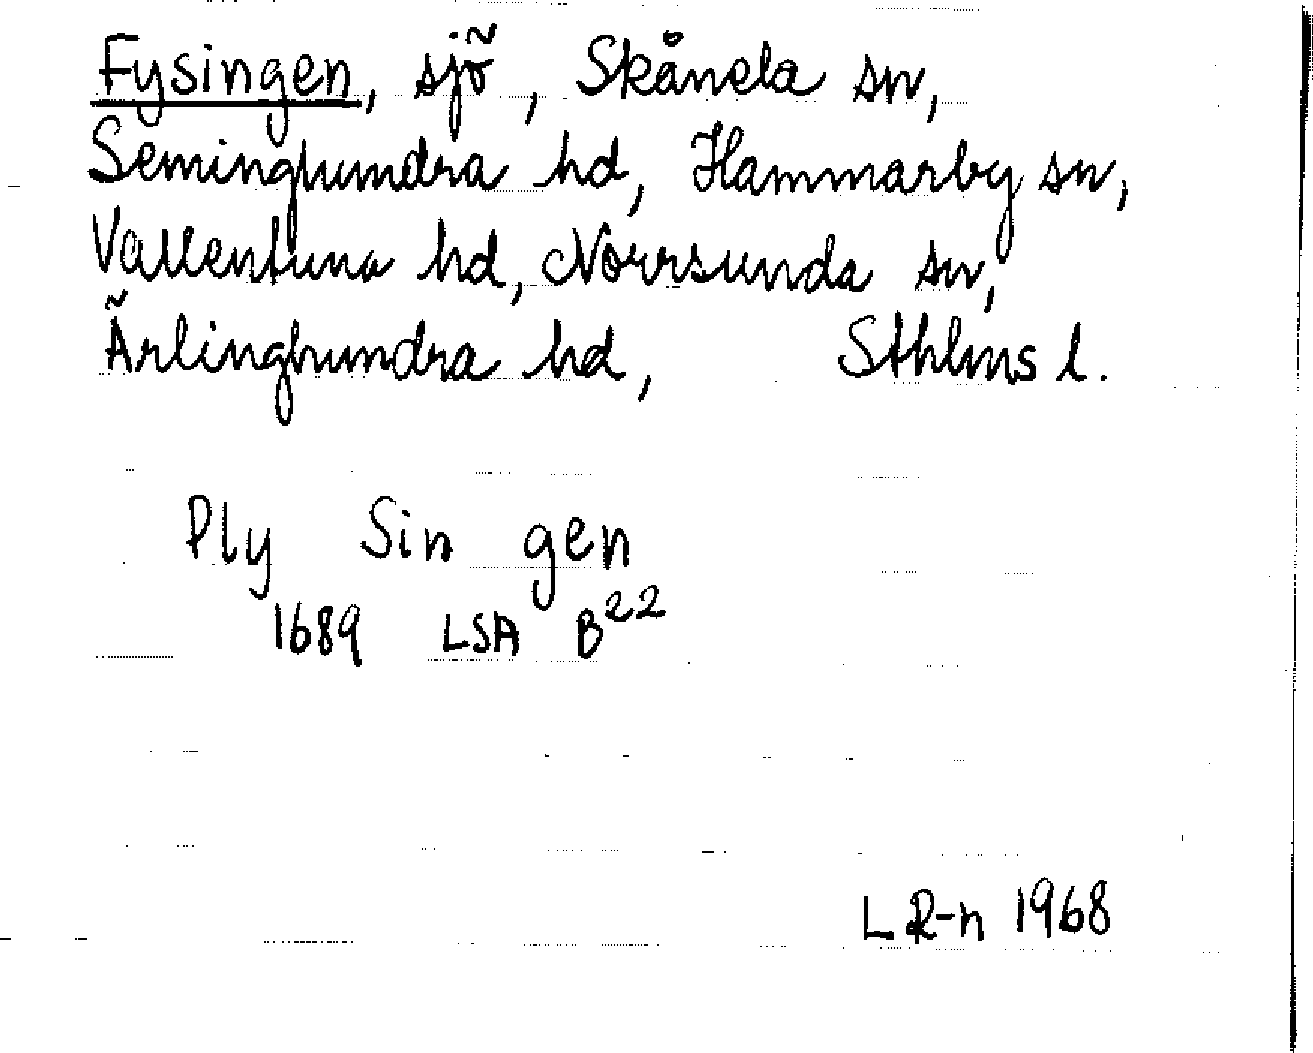 Fysingen, sjö, Skånela sn,
Seminghundra hd, Hammarby sn,
Vallentuna hd, Norrsunda sn,
Ärlinghundra hd, Sthlms l.
Ply Sin gen
1689 LSA B22
L R-n 1968